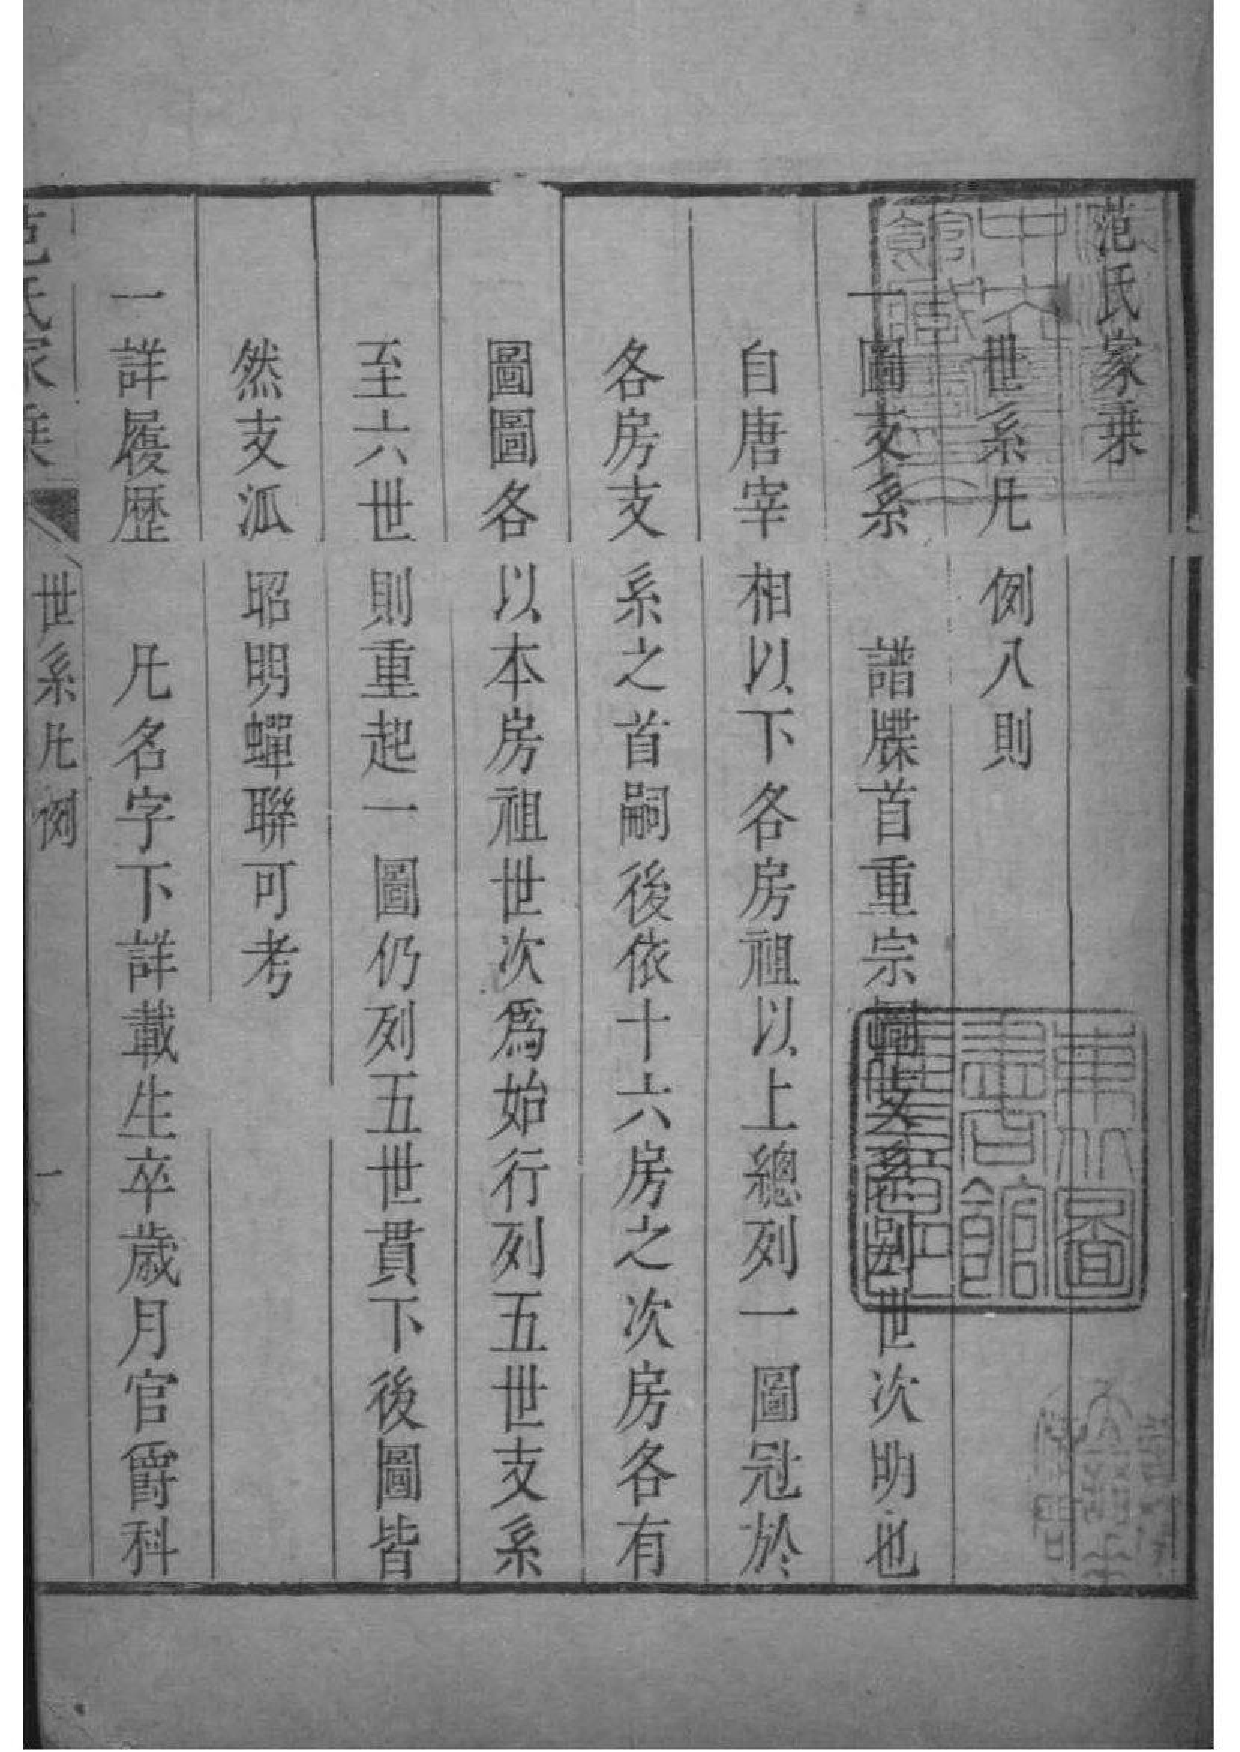 范氏家乗
世系凡例八則
一圖支系　譜牒首重宗嗣支系別世次明也
自唐宰相以下各房祖以上總列一圖冠於
各房支系之首嗣後依十六房之次房各有
圖圖各以本房祖世次爲始行列五世支系
至六世則重起一圖仍列五世貫下後圖皆
然支派昭明蟬聯可考
一詳履歷　凡名字下詳載生卒歲月官爵科
范氏家乗　世系凡例　一